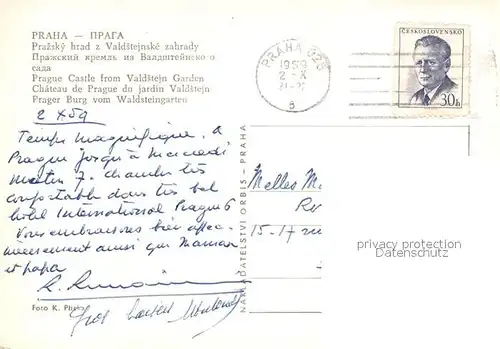 PRAHA — ПРАГА
Pražský hrad z Valdštejnské zahrady
Пражский кремль из Валдштейнско о
сада
Prague Castle from Valdštejn Garden
Château de Prague du jardin Valdštejn
Prager Burg vom Waldsteingarten
2 X 59
Temps magnifique. A
Prague jusqu'à mercredi
matin 7. chambre très
confortable dans très bel
hôtel International Prague 6
Vous embrassons bien affec-
tueusement ainsi que Maman
et papa
Gros baisers
Foto K. Pl
NAKLADATELSTVÍ ORBIS - PRAHA
PRAHA 025
1959
2 -X
6
ČESKOSLOVENSKO
30h
Melles M
15-17 rue
privacy protection
Datenschutz